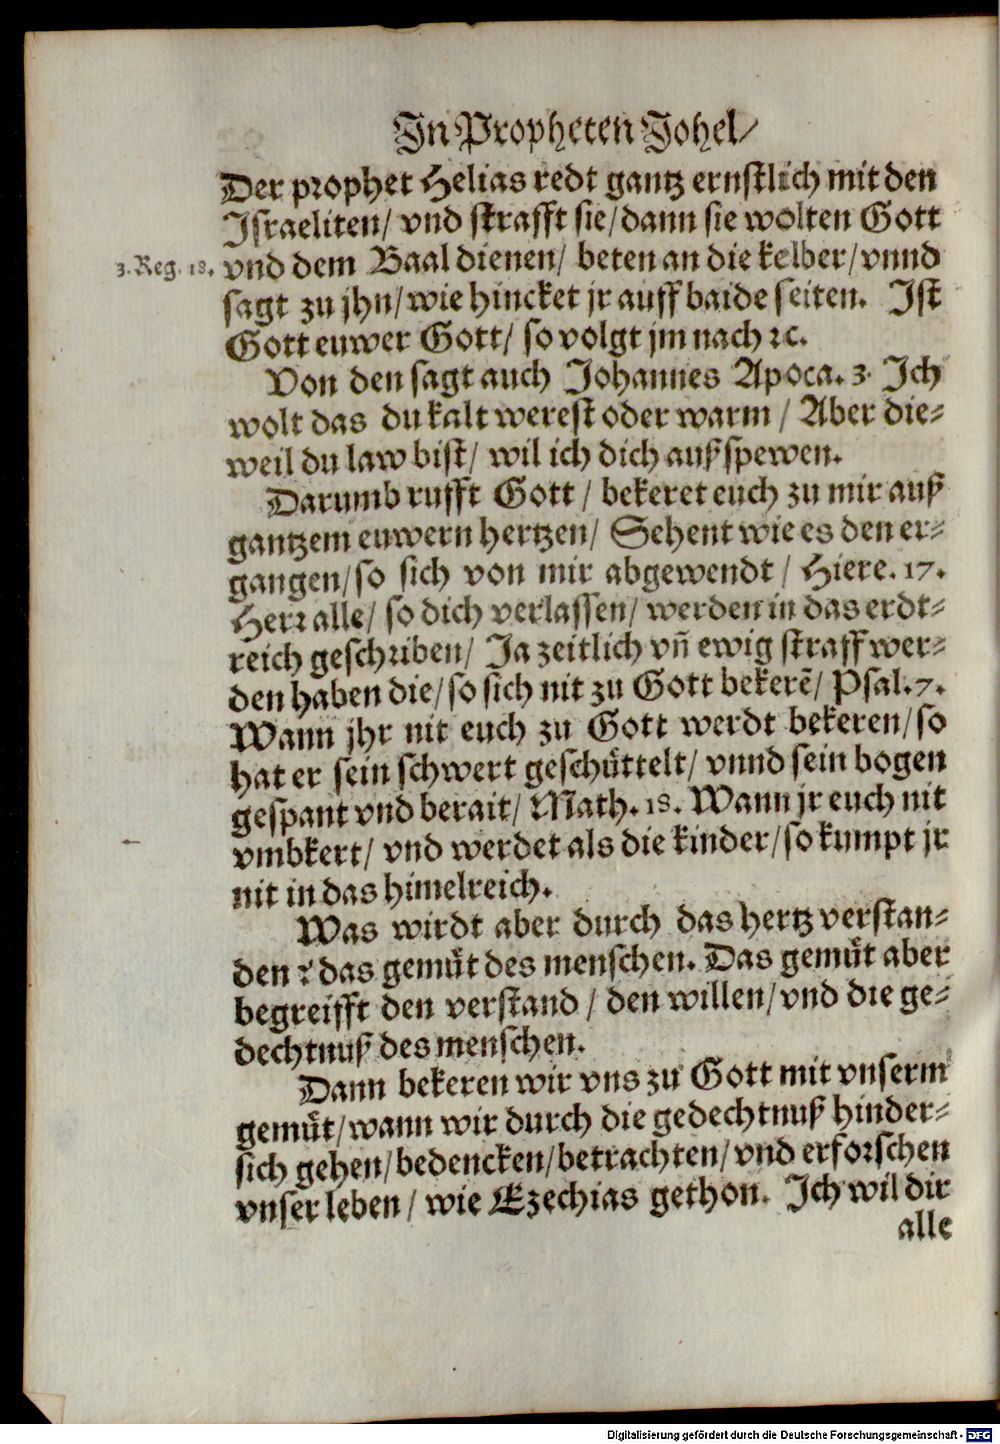 In Propheten Johel/
Der prophet Helias redt gantz ernstlich mit den
Israeliten/ vnd strafft sie/dann sie wolten Gott
3. Reg. 18. vnd dem Baal dienen/ beten an die kelber/vnnd
sagt zu jhn/wie hincket jr auff baide seiten. Ist
Gott euwer Gott/ so volgt jm nach ꝛc.
Von den sagt auch Johannes Apoca. 3. Ich
wolt das du kalt werest oder warm / Aber die-
weil du law bist/ wil ich dich außspewen.
Darumb rufft Gott / bekeret euch zu mir auß
gantzem euwern hertzen/ Sehent wie es den er-
gangen/so sich von mir abgewendt / Hiere. 17.
Herr alle/ so dich verlassen/ werden in das erdt-
reich geschriben/ Ja zeitlich vñ ewig straff wer-
den haben die/so sich nit zu Gott bekerẽ/ Psal. 7.
Wann jhr nit euch zu Gott werdt bekeren/so
hat er sein schwert geschüttelt/ vnnd sein bogen
gespant vnd berait/ Math. 18. Wann jr euch nit
vmbkert/ vnd werdet als die kinder/so kumpt jr
nit in das himelreich.
Was wirdt aber durch das hertz verstan-
den? das gemüt des menschen. Das gemüt aber
begreifft den verstand / den willen/vnd die ge-
dechtnuß des menschen.
Dann bekeren wir vns zu Gott mit vnserm
gemüt/wann wir durch die gedechtnuß hinder-
sich gehen/bedencken/betrachten/vnd erforschen
vnser leben / wie Ezechias gethon. Ich wil dir
alle
Digitalisierung gefördert durch die Deutsche Forschungsgemeinschaft - DFG